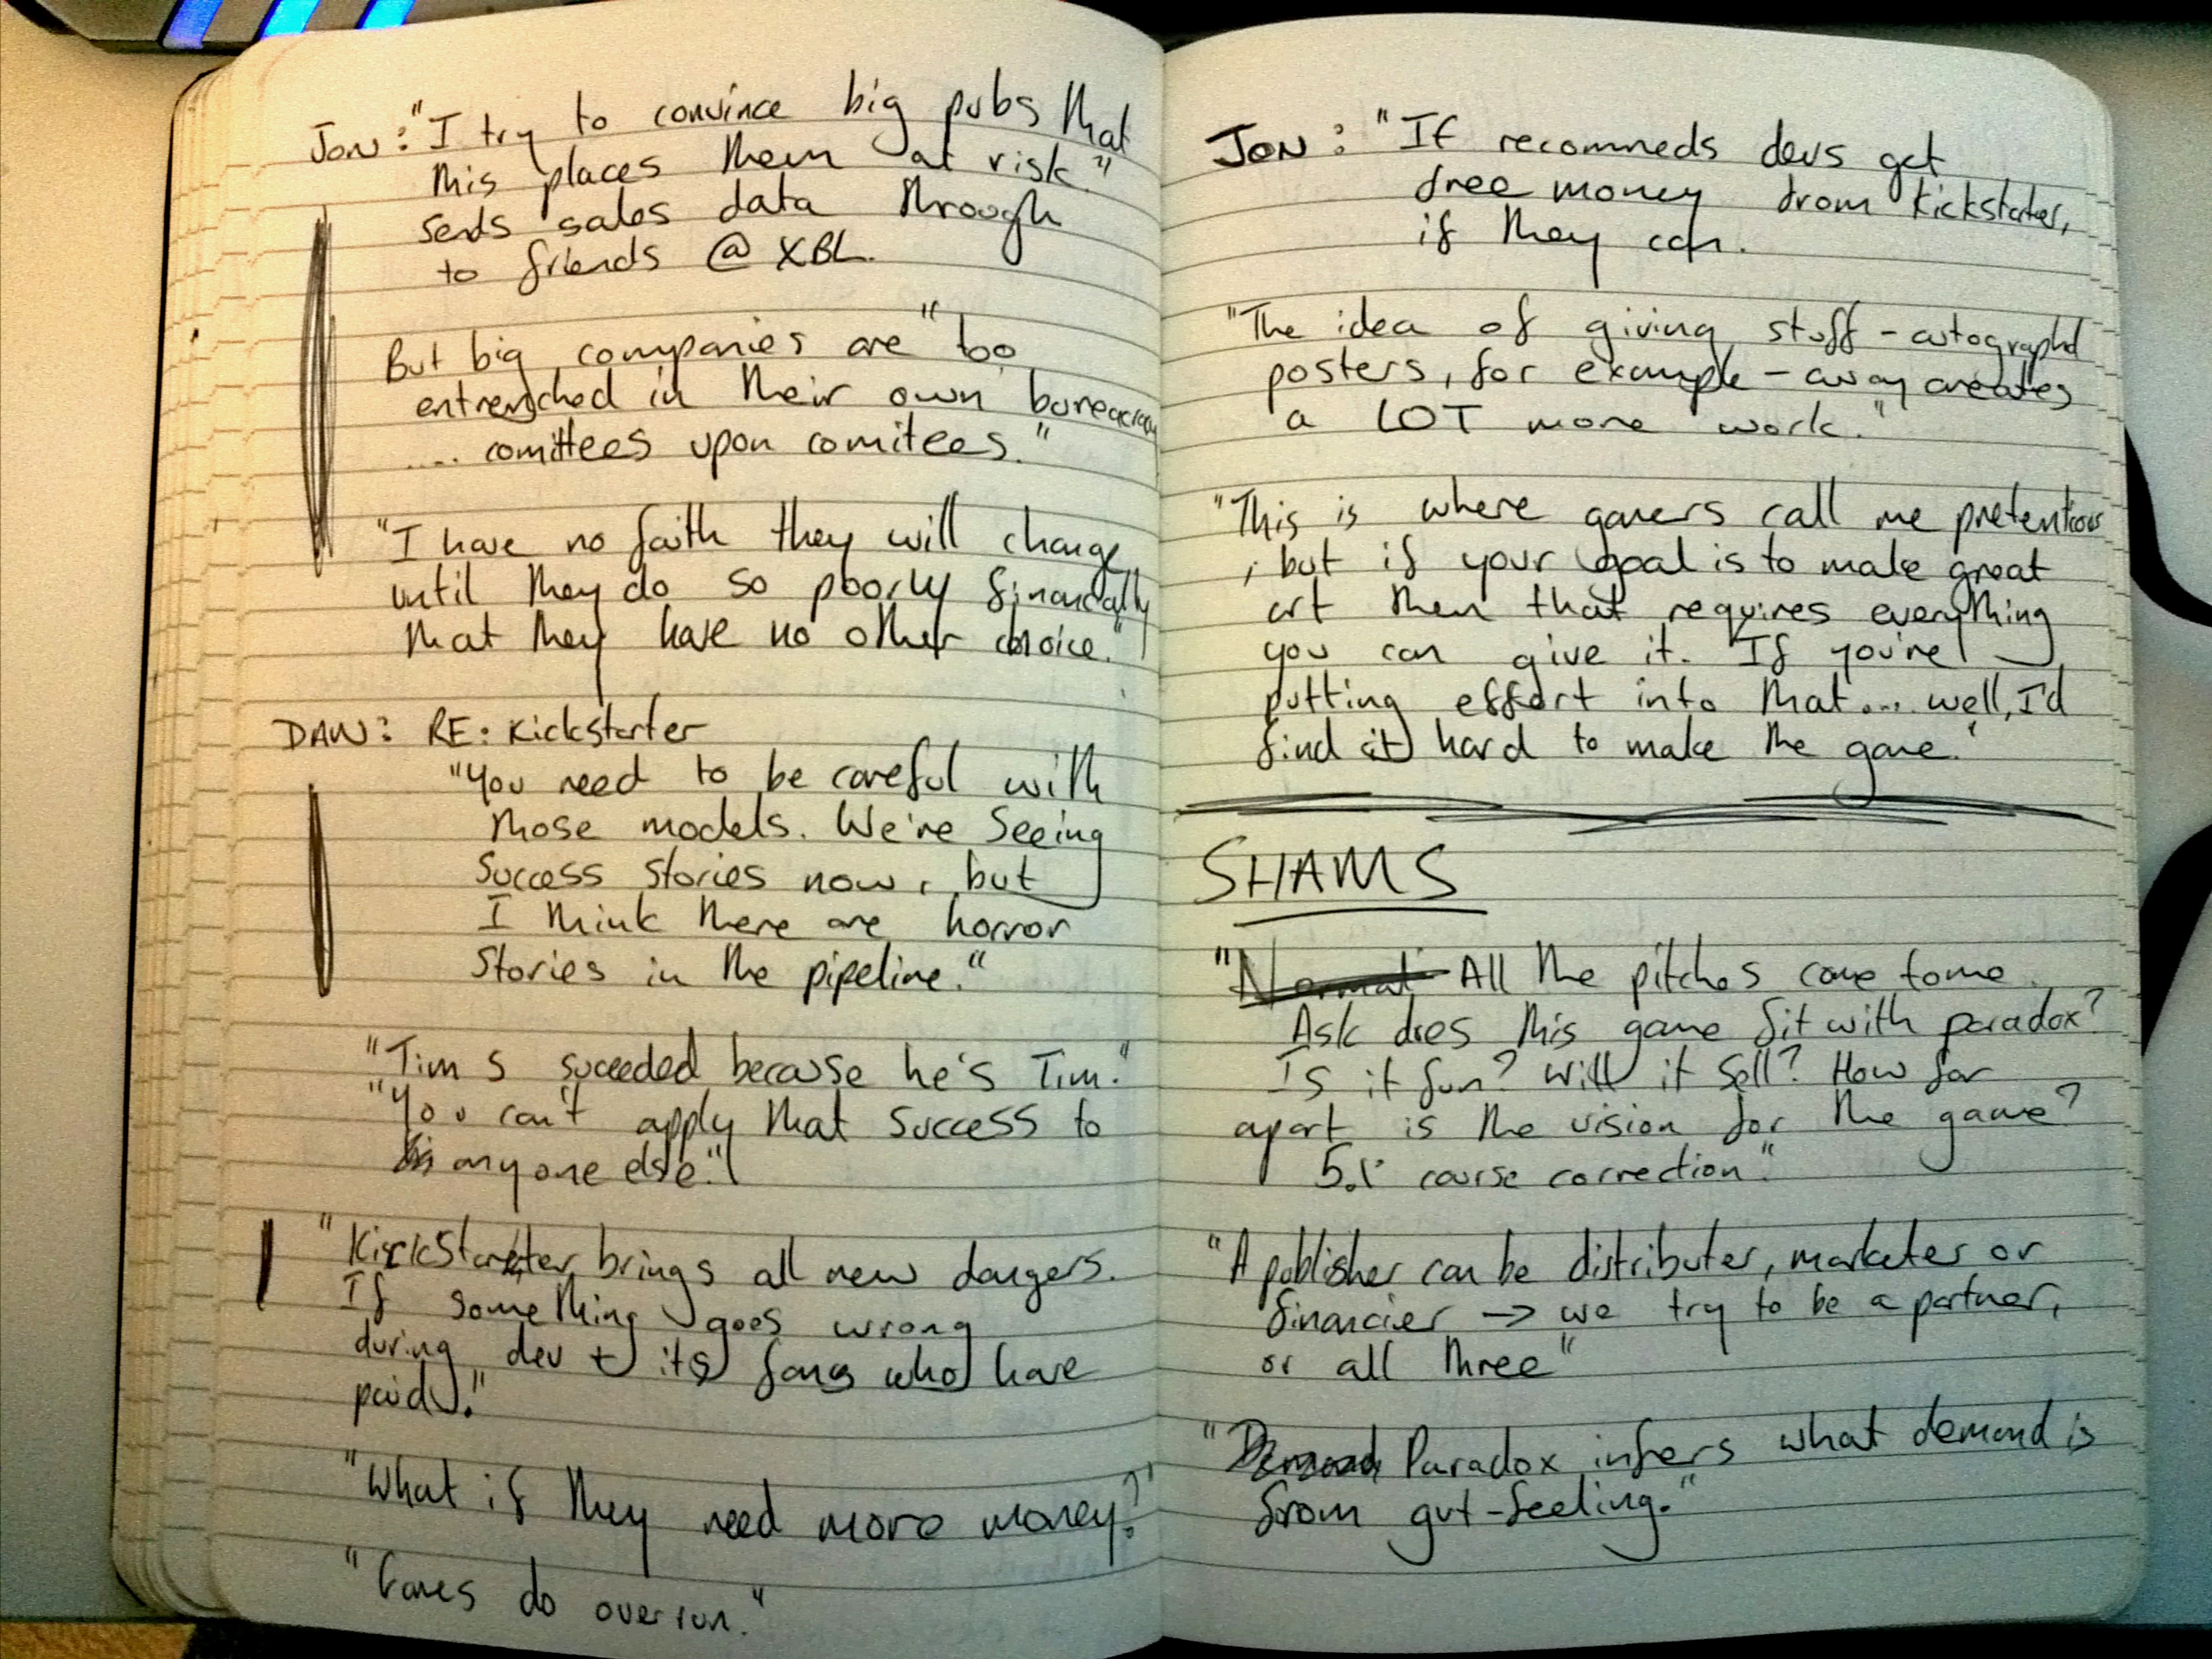 Jon: "I try to convince big pubs that
this places them at risk."
Sends sales data through
to friends @ XBL.
But big companies are "too
entrenched in their own bureacracy
.... comittees upon comitees."
"I have no faith they will change
until they do so poorly financially
that they have no other choice."
DAN: RE: Kickstarter
"You need to be careful with
those models. We're seeing
success stories now, but
I think there are horror
stories in the pipeline."
"Tim S suceeded because he's Tim."
"You can't apply that success to
anyone else."
"Kickstarter brings all new dangers.
If something goes wrong
during dev + its fans who have
paid."
"What if they need more money?"
"Games do overrun."
JON: "If recommeds devs get
free money from Kickstarter,
if they can.
"The idea of giving stuff - autographd
posters, for example - away creates
a LOT more work."
"This is where gamers call me pretentious
, but if your goal is to make great
art then that requires everything
you can give it. If you're
putting effort into that... well, I'd
find it hard to make the game."
SHAMS
"Normal All the pitches come to me.
Ask does this game fit with paradox?
Is it fun? Will it sell? How far
apart is the vision for the game?
5% course correction"
"A publisher can be distributer, marketer or
financier → we try to be a partner,
or all three"
"Demand Paradox infers what demand is
from gut-feeling."